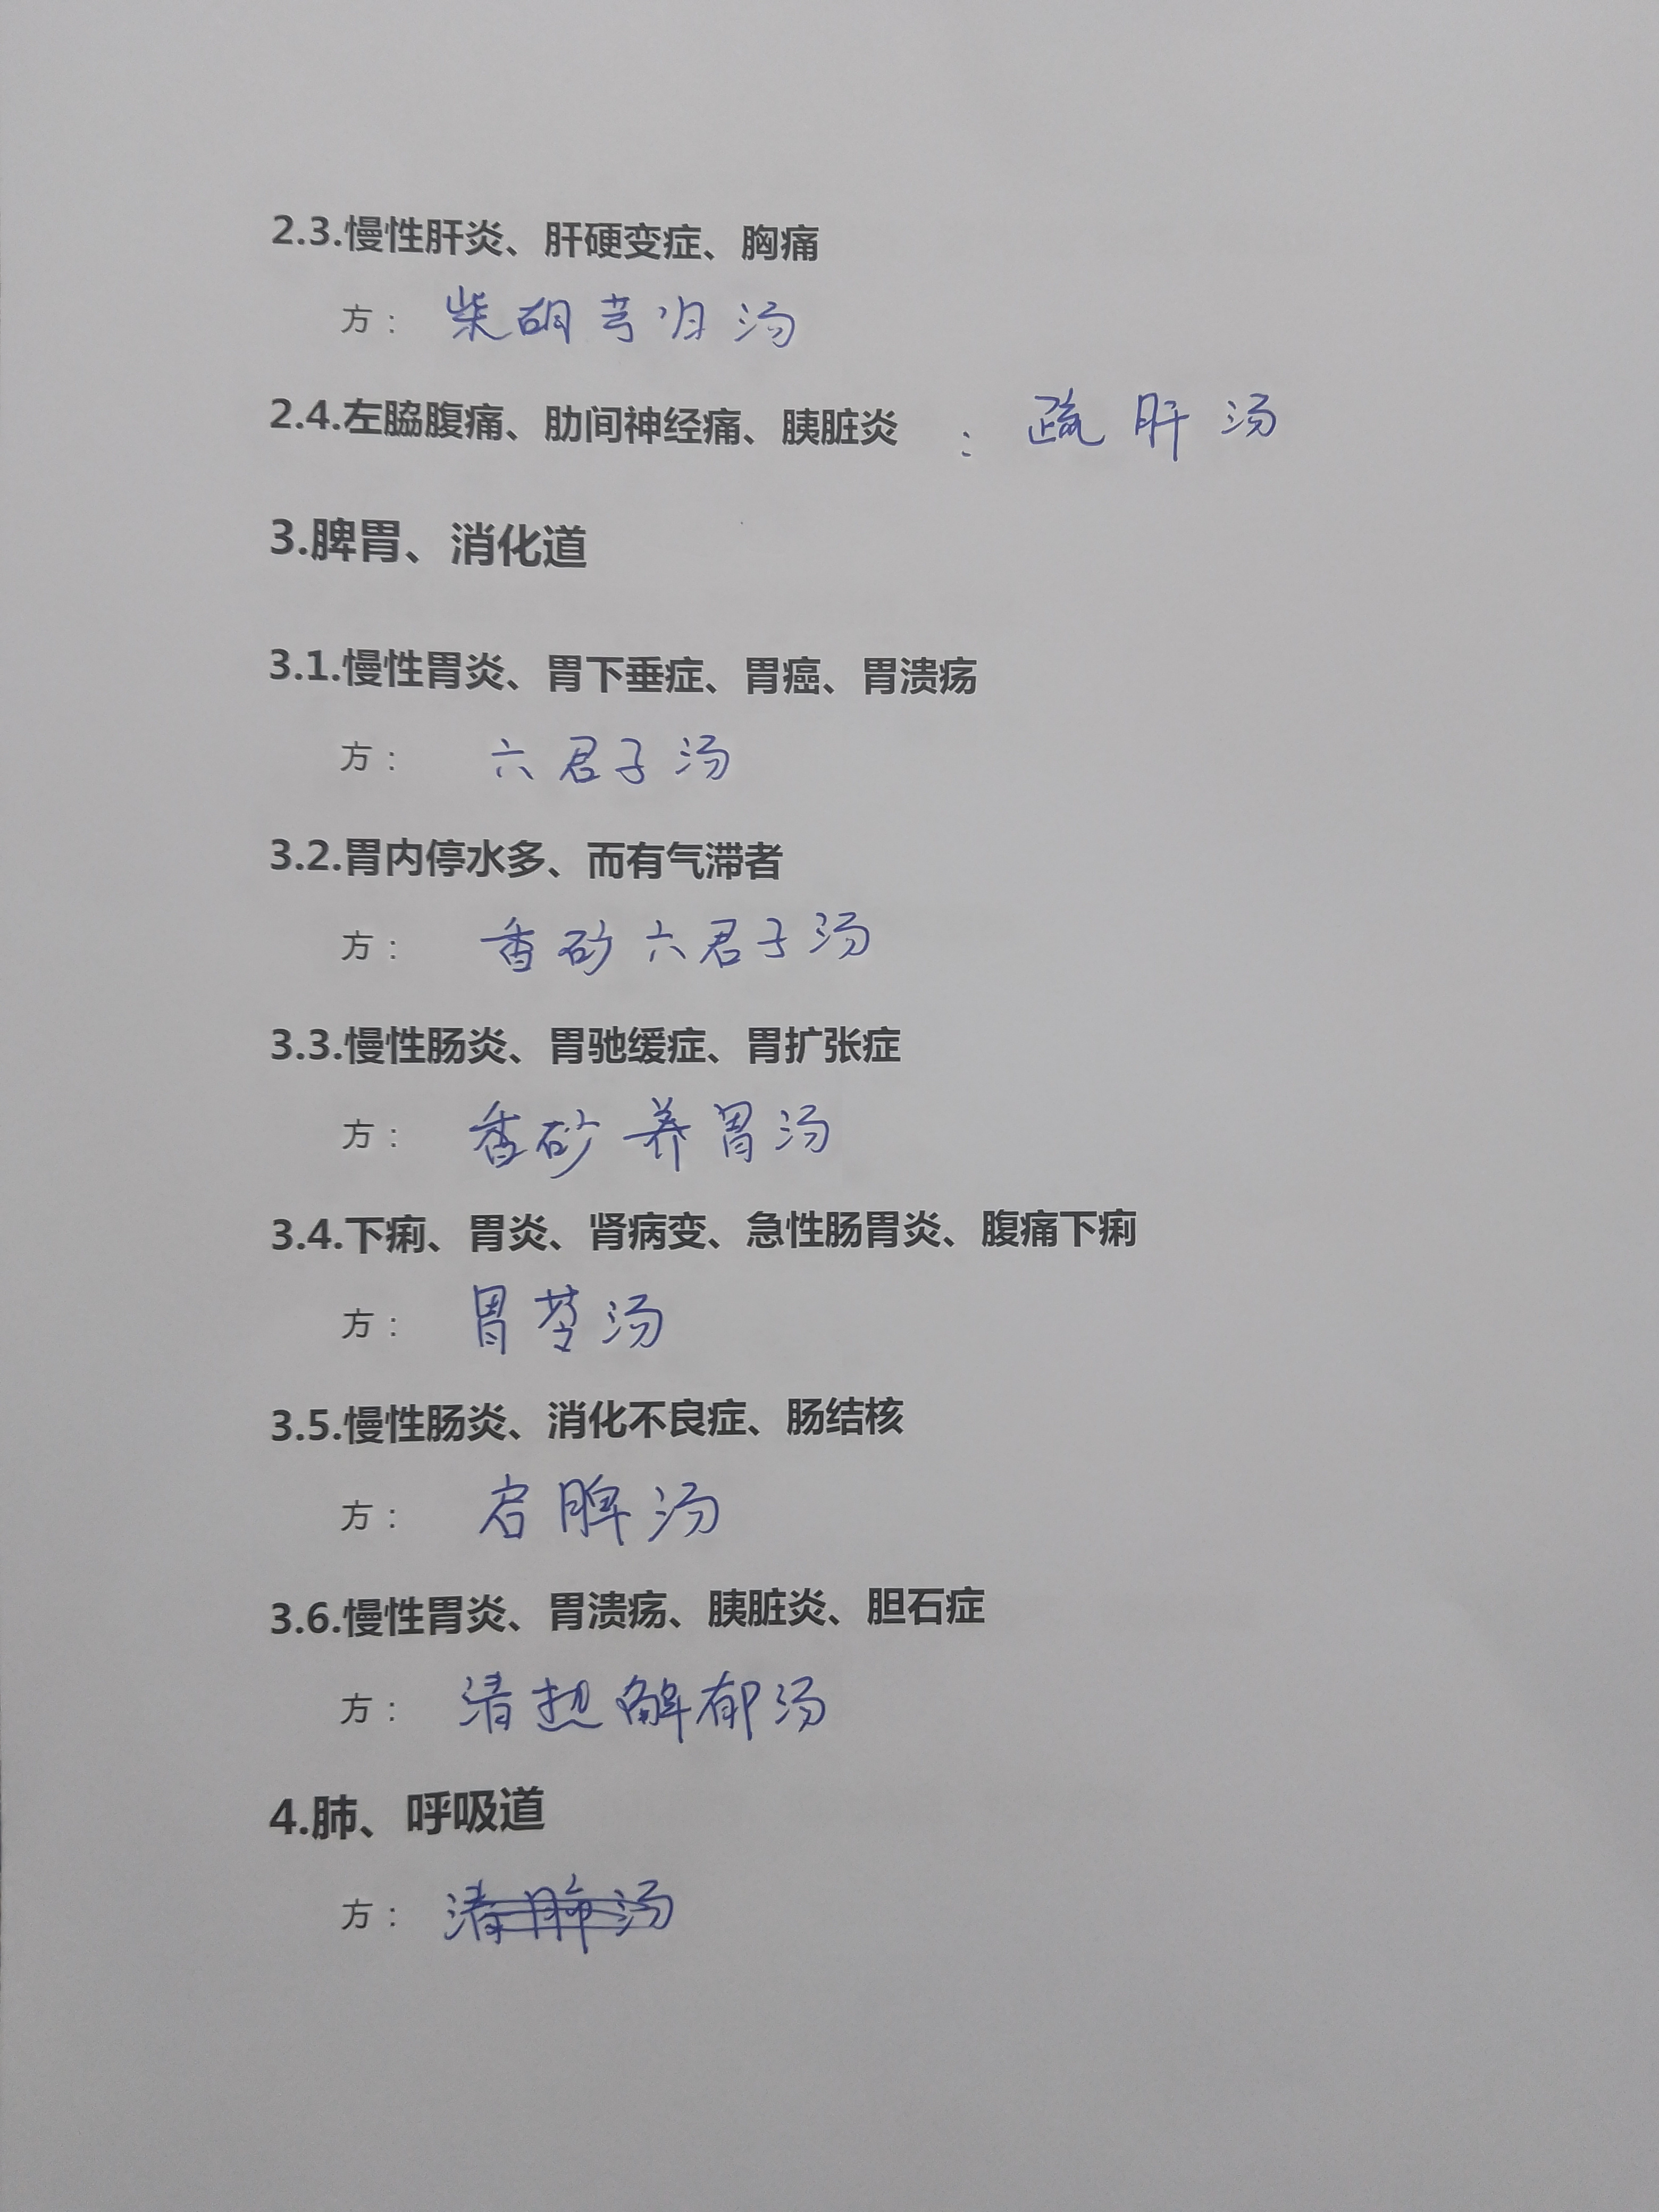 2.3.慢性肝炎、肝硬变症、胸痛
方： 柴胡芎归汤
2.4.左脇腹痛、肋间神经痛、胰脏炎 ： 疏肝汤
3.脾胃、消化道
3.1.慢性胃炎、胃下垂症、胃癌、胃溃疡
方： 六君子汤
3.2.胃内停水多、而有气滞者
方： 香砂六君子汤
3.3.慢性肠炎、胃驰缓症、胃扩张症
方： 香砂养胃汤
3.4.下痢、胃炎、肾病变、急性肠胃炎、腹痛下痢
方： 胃苓汤
3.5.慢性肠炎、消化不良症、肠结核
方： 启脾汤
3.6.慢性胃炎、胃溃疡、胰脏炎、胆石症
方： 清热解郁汤
4.肺、呼吸道
方： 清肺汤